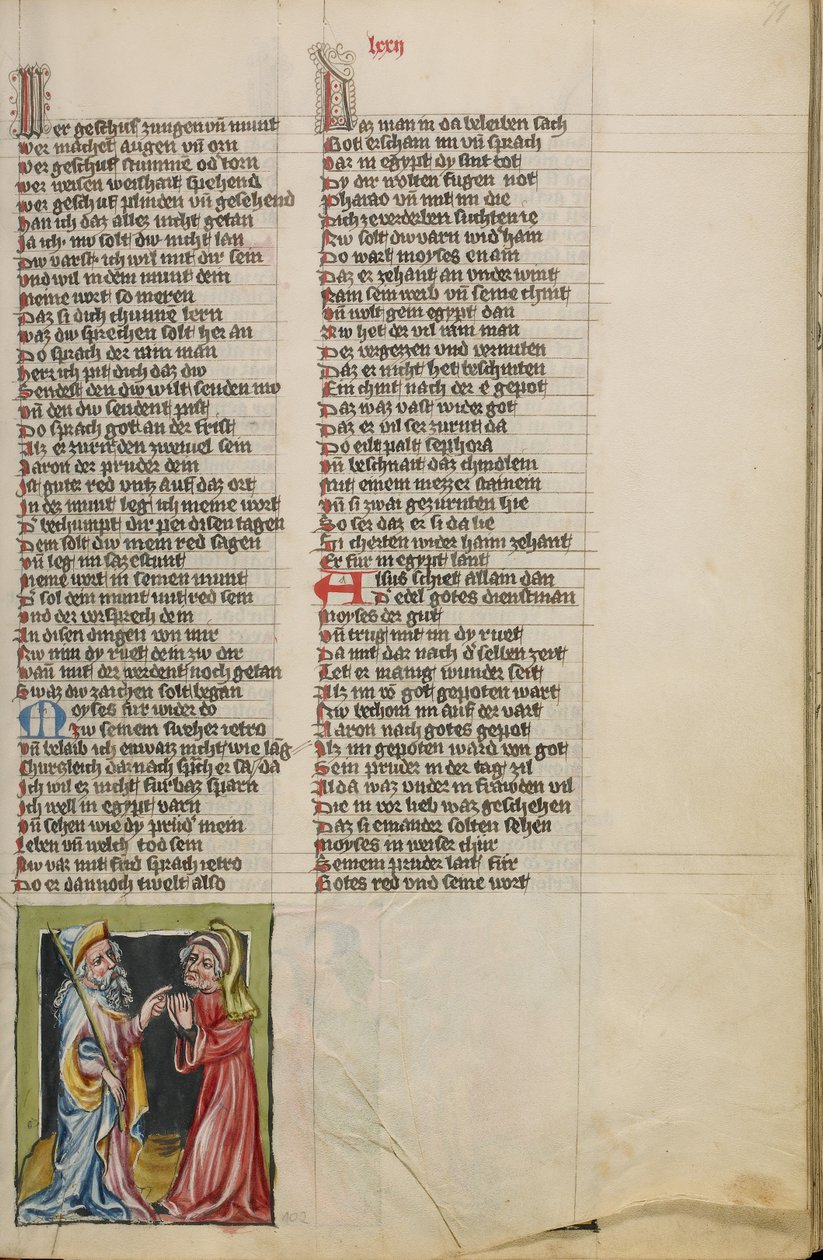 lxxij
71
Wer geschuf zungen vñ munt
Wer machet augen vñ orn
Wer geschuf stumme od torn
Wer weisen weishait spehend
Wer geschuf plinden vñ gesehend
Han ich daz allez nicht getan
Ja ich· nw solt dw nicht lan
Dw varst· ich wil mit dir sein
Vnd wil in dem munt dein
Meine wort so meren
Daz si dich chunne lern
Waz dw sprechen solt her an
Do sprach der rain man
Herr ich pit dich daz dw
Sendest den dw wilt senden nw
Vñ den dw sendent pist
Do sprach got an der frist
Alz er zurn den zweiuel sein
Aaron der pruder dein
Ist guter red vntz auf daz ort
In dez munt leg ich meine wort
D' bechumpt dir pei disen tagen
Dem solt dw mein red sagen
Vñ leg im sa zestunt
Meine wort in seinen munt
D' sol dein munt mit red sein
Vnd der vorsprech dein
An disen dingen von mir
Nw nim dy ruet dein zw dir
Wañ mit der werdent noch getan
Swaz dw zaichen solt began
Moyses fur wider do
Zw seinem sweher ietro
Vñ belaib ich enwaiz nicht wie lãg
Churtzleich dar nach sp̃ch er sa da
Ich wil ez nicht furbaz sparn
Ich well in egypt varn
Vñ sehen wie dy prud' mein
Leben vñ welch tod sein
Nw var mit frid sprach ietro
Do er dannoch twelt also
Daz man in da beleiben sach
Got erschain im vñ sprach
Var in egypt dy sint tot
Dy dir wolten fugen not
Pharao vñ mit im die
Dich ze verderben suchten ie
Nw solt dw varn wid' haim
Do wart moyses enain
Daz er zehant an vnder wint
Nam sein weib vñ seine chint
Vñ wolt gein egypt dan
Nw het der vil rain man
Dez vergezzen vnd vermiten
Daz er nicht het beschniten
Ein chint nach der e gepot
Daz waz vast wider got
Daz er vil ser zurnt da
Do eilt palt sephora
Vñ beschnait daz chindlein
Mit einem mezzer stainein
Vñ si zwai gezurnten hie
So ser daz er si da lie
Si cherten wider haim zehant
Er fur in egypt lant
Alsus schiet allain dan
D' edel gotes dienstman
Moyses der gut
Vñ trug mit im dy ruet
Da mit dar nach d' selben zeit
Tet er manig wunder seit
Alz im võ got gepoten wart
Nw bechom im auf der vart
Aaron nach gotes gepot
Alz im gepoten ward von got
Sein pruder in der tag zil
Al da waz vnder in frawden vil
Die in vor lieb waz geschehen
Daz si einander solten sehen
Moyses in weiser chur
Seinem pruder lait fur
Gotes red vnd seine wort
102